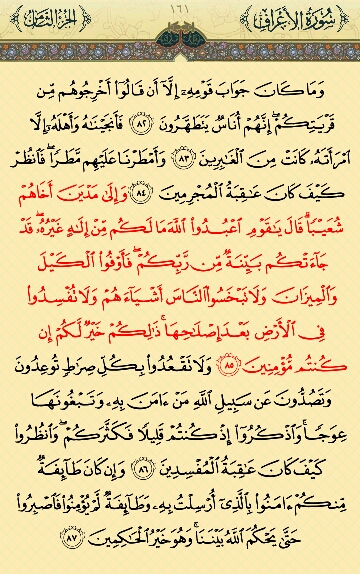 سُورَةُ الْأَعْرَافِ ١٦١ الجُزءُ الثَّامِنُ
وَمَا كَانَ جَوَابَ قَوْمِهِۦٓ إِلَّآ أَن قَالُوٓا۟ أَخْرِجُوهُم مِّن
قَرْيَتِكُمْ ۖ إِنَّهُمْ أُنَاسٌ يَتَطَهَّرُونَ ﴿٨٢﴾ فَأَنجَيْنَٰهُ وَأَهْلَهُۥٓ إِلَّا
ٱمْرَأَتَهُۥ كَانَتْ مِنَ ٱلْغَٰبِرِينَ ﴿٨٣﴾ وَأَمْطَرْنَا عَلَيْهِم مَّطَرًا ۖ فَٱنظُرْ
كَيْفَ كَانَ عَٰقِبَةُ ٱلْمُجْرِمِينَ ﴿٨٤﴾ وَإِلَىٰ مَدْيَنَ أَخَاهُمْ
شُعَيْبًا ۗ قَالَ يَٰقَوْمِ ٱعْبُدُوا۟ ٱللَّهَ مَا لَكُم مِّنْ إِلَٰهٍ غَيْرُهُۥ ۖ قَدْ
جَآءَتْكُم بَيِّنَةٌ مِّن رَّبِّكُمْ ۖ فَأَوْفُوا۟ ٱلْكَيْلَ
وَٱلْمِيزَانَ وَلَا تَبْخَسُوا۟ ٱلنَّاسَ أَشْيَآءَهُمْ وَلَا تُفْسِدُوا۟
فِى ٱلْأَرْضِ بَعْدَ إِصْلَٰحِهَا ۚ ذَٰلِكُمْ خَيْرٌ لَّكُمْ إِن
كُنتُم مُّؤْمِنِينَ ﴿٨٥﴾ وَلَا تَقْعُدُوا۟ بِكُلِّ صِرَٰطٍ تُوعِدُونَ
وَتَصُدُّونَ عَن سَبِيلِ ٱللَّهِ مَنْ ءَامَنَ بِهِۦ وَتَبْغُونَهَا
عِوَجًا ۚ وَٱذْكُرُوٓا۟ إِذْ كُنتُمْ قَلِيلًا فَكَثَّرَكُمْ ۖ وَٱنظُرُوا۟
كَيْفَ كَانَ عَٰقِبَةُ ٱلْمُفْسِدِينَ ﴿٨٦﴾ وَإِن كَانَ طَآئِفَةٌ
مِّنكُمْ ءَامَنُوا۟ بِٱلَّذِىٓ أُرْسِلْتُ بِهِۦ وَطَآئِفَةٌ لَّمْ يُؤْمِنُوا۟ فَٱصْبِرُوا۟
حَتَّىٰ يَحْكُمَ ٱللَّهُ بَيْنَنَا ۚ وَهُوَ خَيْرُ ٱلْحَٰكِمِينَ ﴿٨٧﴾